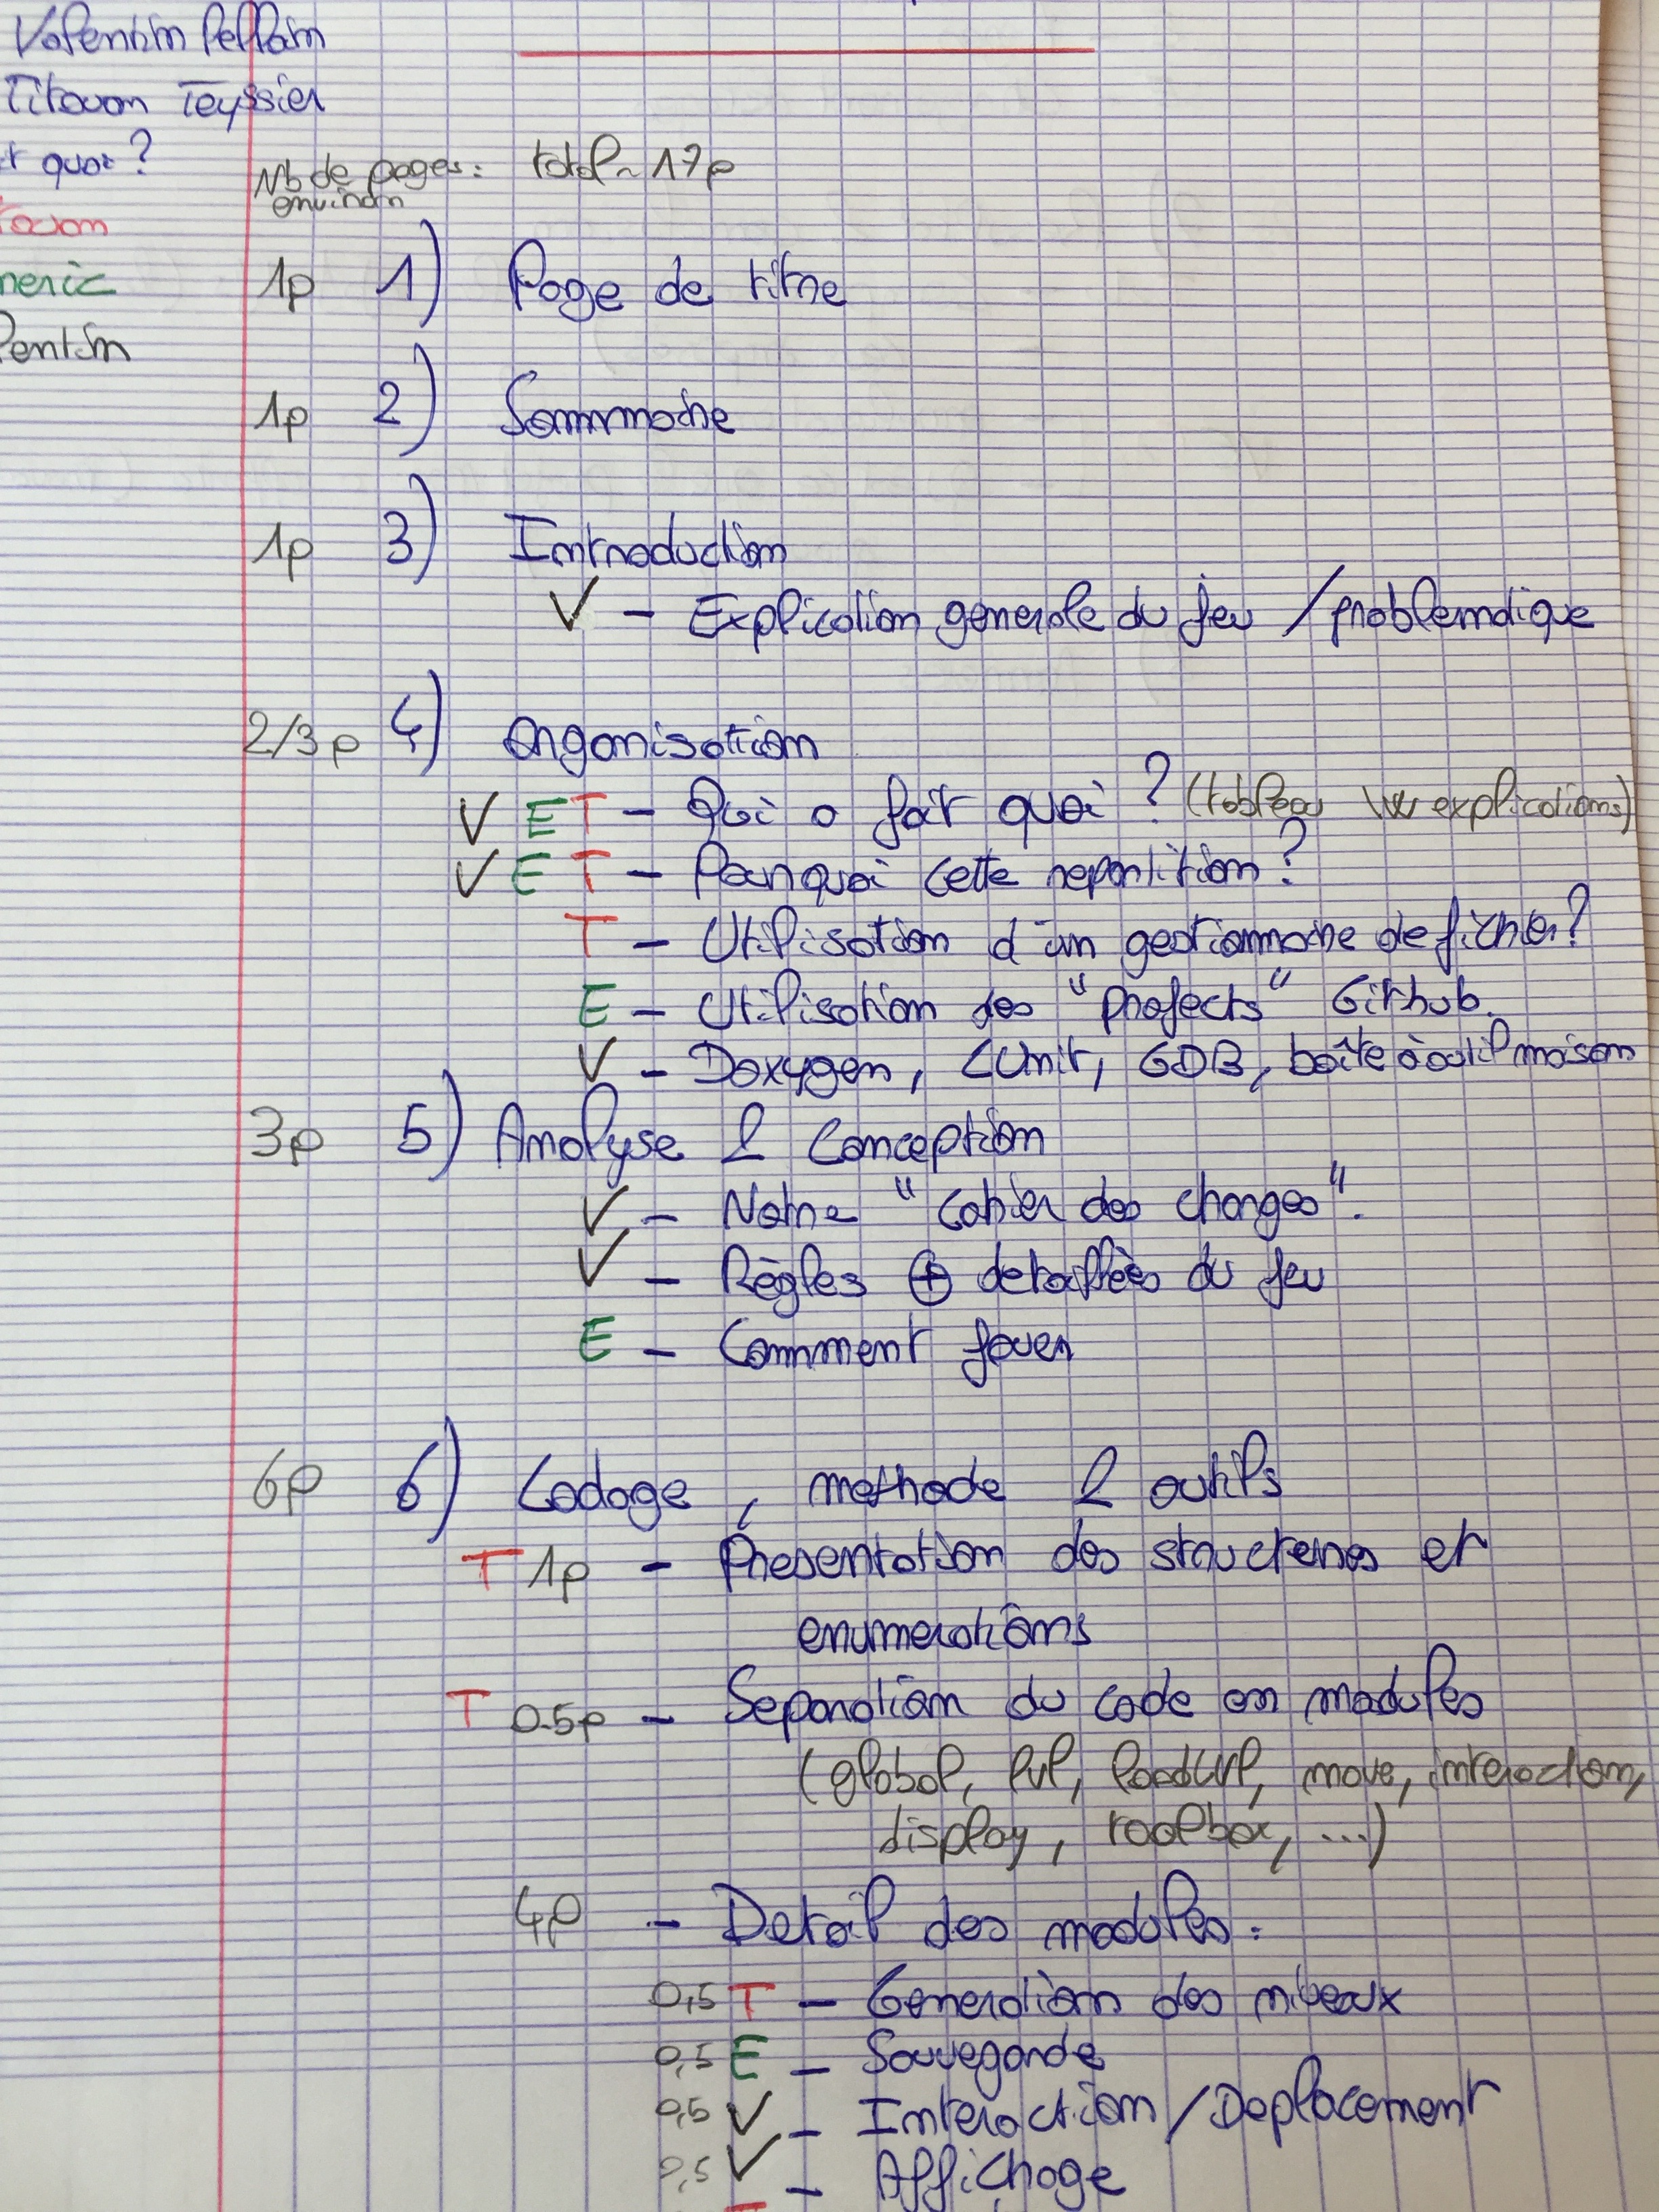 Valentin Pellan
Titouan Teyssier
quoi ?
Nb de pages : total ~ 17p
environ
1p 1) Page de titre
1p 2) Sommaire
1p 3) Introduction
V - Explication generale du jeu / problematique
2/3p 4) Organisation
V E T - Qui a fait quoi ? (tableau explications)
V E T - Pourquoi cette repartition ?
T - Utilisation d'un gestionnaire de fichier ?
E - Utilisation des "projects" Github.
V - Doxygen, CUnit, GDB, boîte à outil maison
3p 5) Analyse & Conception
V - Notre "Cahier des charges".
V - Règles ⊕ detaillées du jeu
E - Comment jouer
6p 6) Codage, methode & outils
T 1p - Presentation des structures et
enumerations
T 0.5p - Separation du code en modules
(global, lvl, loadLvl, move, interaction,
display, toolbox, ...)
4p - Detail des modules :
0,5 T - Generation des niveaux
0,5 E - Sauvegarde
0,5 V - Interaction / Deplacement
0,5 V - Affichage